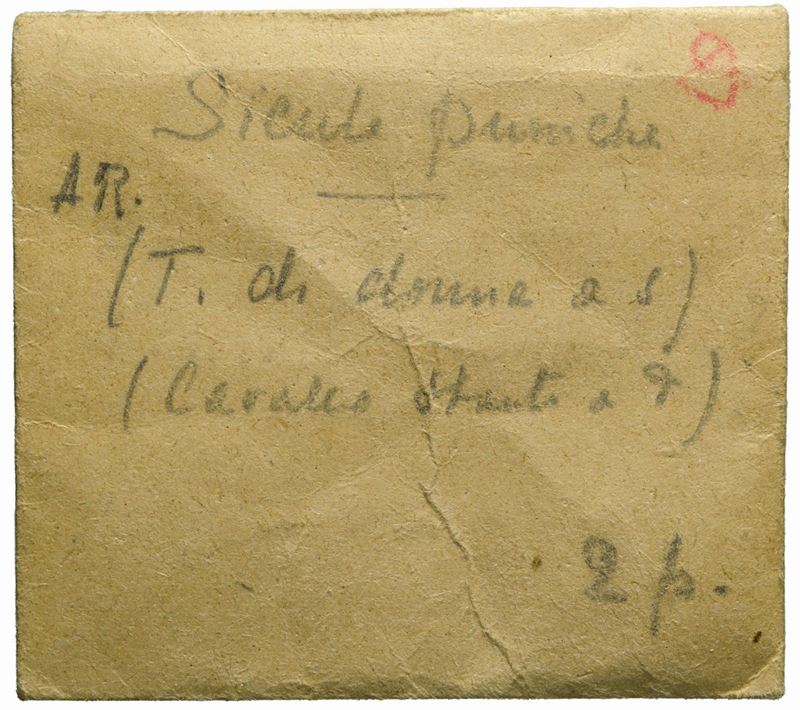 Sicule puniche
AR.
(T. di donna a s)
(Cavallo stante a d)
2 p.